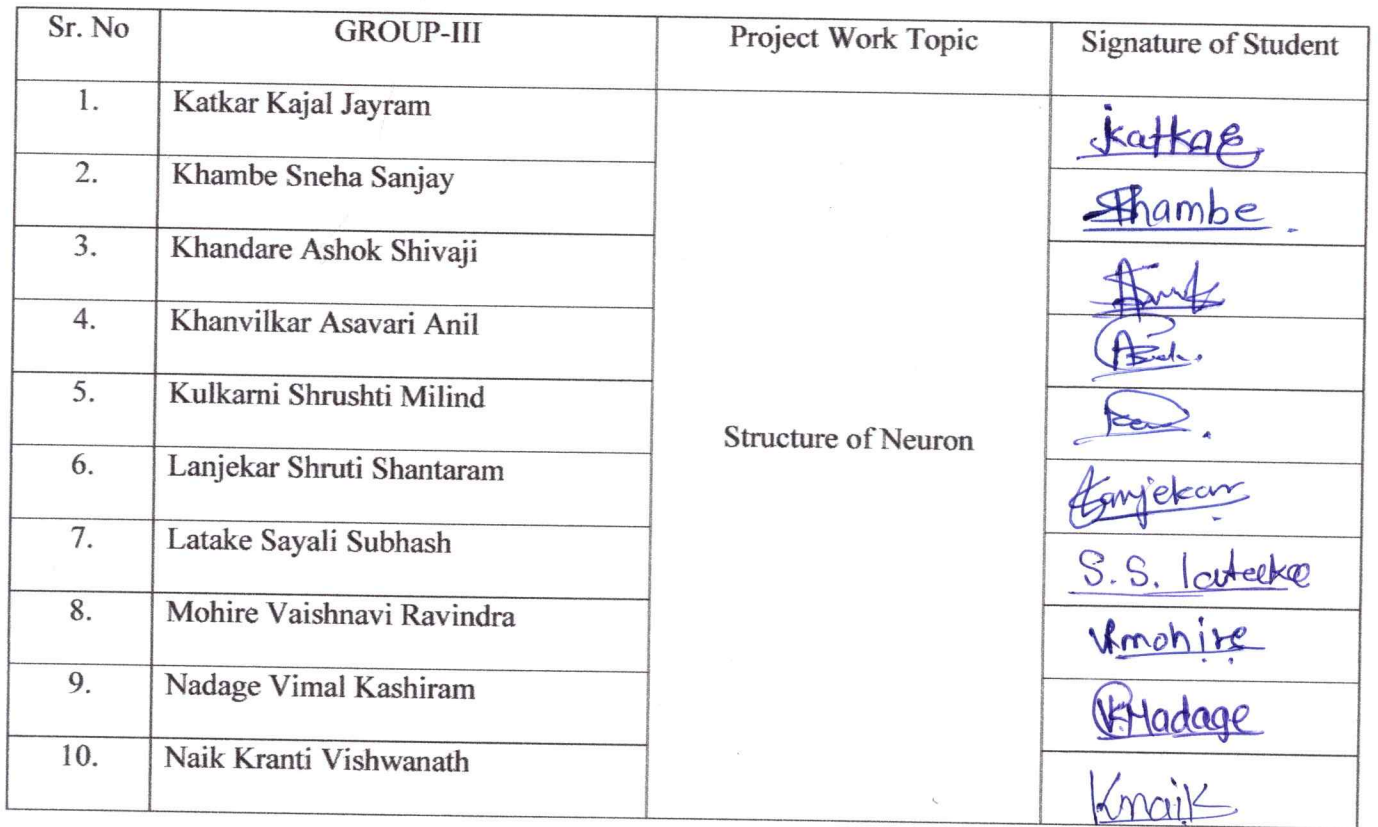 Sr. No GROUP-III Project Work Topic Signature of Student
1. Katkar Kajal Jayram
2. Khambe Sneha Sanjay
Khambe
3. Khandare Ashok Shivaji
4. Khanvilkar Asavari Anil
5. Kulkarni Shrushti Milind
Structure of Neuron
6. Lanjekar Shruti Shantaram
Lanjekar
7. Latake Sayali Subhash
S. S. latake
8. Mohire Vaishnavi Ravindra
VRmohire
9. Nadage Vimal Kashiram
VKNadage
10. Naik Kranti Vishwanath
Knaik